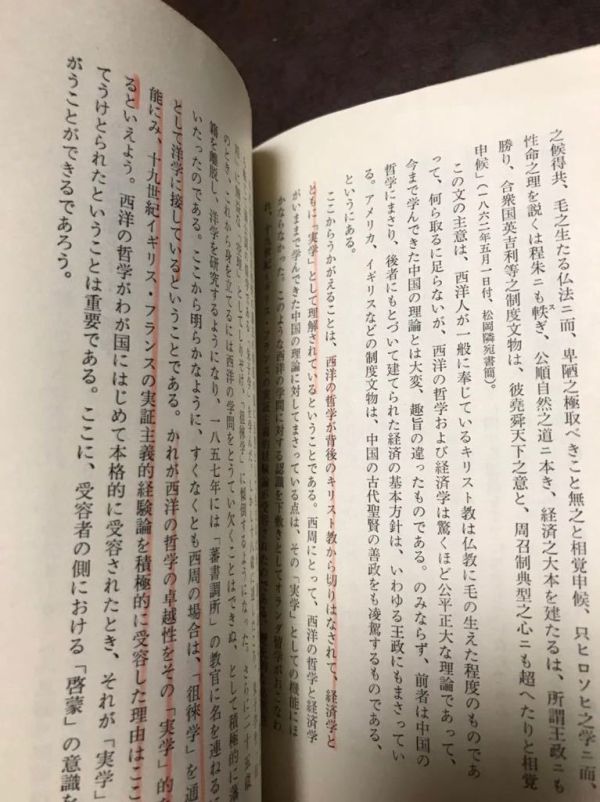 之候得共、毛之生たる仏法ニ而 卑陋之極取べきこと無之と相覚申候、只ヒロソヒ之学ニ而、
性命之理を説くは程朱ニも軼ぎ、公順自然之道ニ本き、経済之大本を建たるは、所謂王政ニも
勝り、合衆国英吉利等之制度文物は、彼堯舜官天下之意と、周召制典型之心ニも超へたりと相覚
申候」(一八六二年五月一日付、松岡隣宛書簡)。
この文の主意は、西洋人が一般に奉じているキリスト教は仏教に毛の生えた程度のものであ
って、何ら取るに足らないが、西洋の哲学および経済学は驚くほど公平正大な理論であって、
今まで学んできた中国の理論とは大変、趣旨の違ったものである。のみならず、前者は中国の
哲学にまさり、後者にもとづいて建てられた経済の基本方針は、いわゆる王政にもまさってい
る。アメリカ、イギリスなどの制度文物は、中国の古代聖賢の善政をも凌駕するものである、
というにある。
ここからうかがえることは、西洋の哲学が背後のキリスト教から切りはなされて、経済学と
ともに「実学」として理解されているということである。西周にとって、西洋の哲学と経済学
がいままで学んできた中国の理論に対してまさっている点は、その「実学」としての機能にほ
かならなかった。このような西洋の学問に対する認識を下敷きとしてオランダ留学がおこなわ
のとき、これから身を立てるには西洋の学問をとうてい欠くことはできぬ、として積極的に藩
籍を離脱し、洋学を研究するようになり、一八五七年には「蕃書調所」の教官に名を連ねるに
いたったのである。ここから明らかなように、すくなくとも西周の場合は、「徂徠学」を通
として洋学に接しているということである。かれが西洋の哲学の卓越性をその「実学」的
能にみ、十九世紀イギリス・フランスの実証主義的経験論を積極的に受容した理由はここ
るといえよう。西洋の哲学がわが国にはじめて本格的に受容されたとき、それが「実学」
てうけとられたということは重要である。ここに、受容者の側における「啓蒙」の意識を
がうことができるであろう。